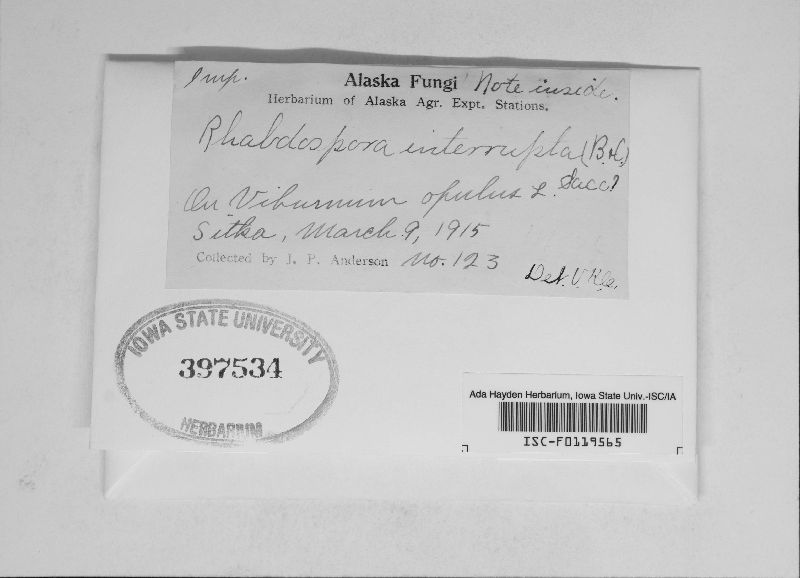 Imp. Alaska Fungi Note inside.
Herbarium of Alaska Agr. Expt. Stations.
Rhabdospora interrupta (B.&C.)
Sacc?
On Viburnum opulus L.
Sitka, March 9, 1915
Collected by J. P. Anderson No. 123
Det. V.
IOWA STATE UNIVERSITY
397534
HERBARIUM
Ada Hayden Herbarium, Iowa State Univ.-ISC/IA
ISC-F0119565